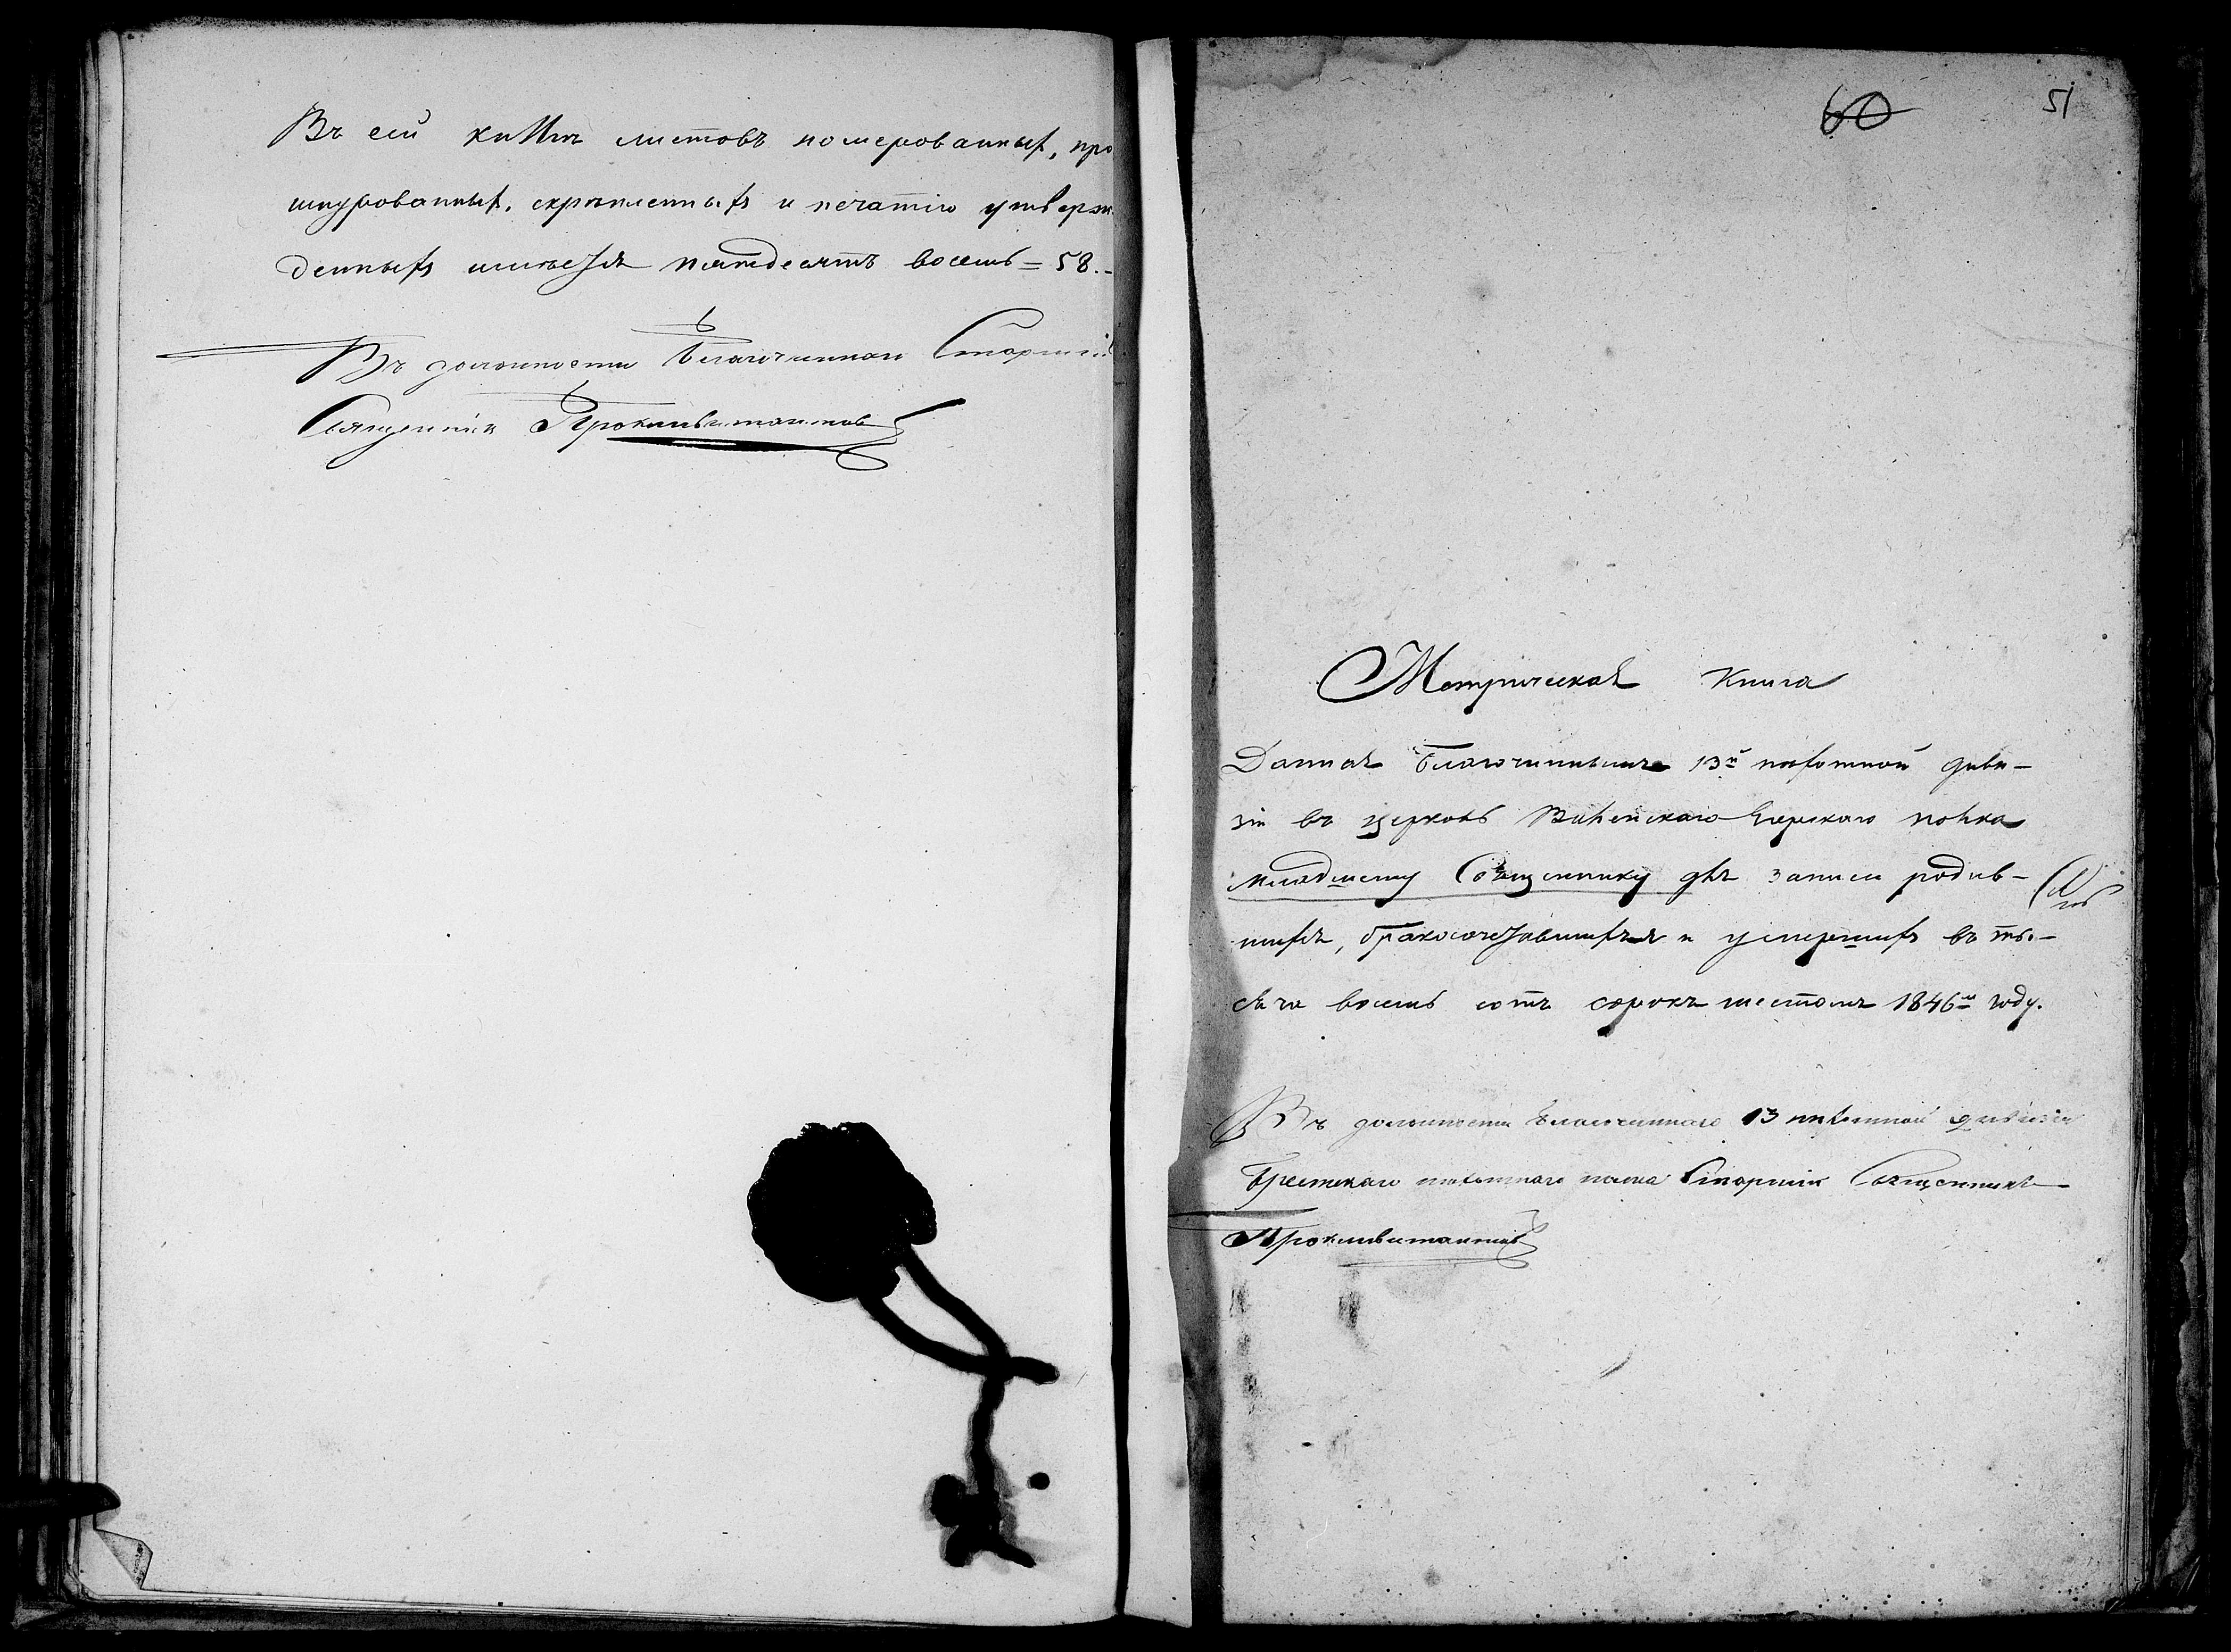 Въ сей книгѣ листовъ номерованныхъ, про
шнурованныхъ, скрѣпленныхъ и печатію утверж
денныхъ имѣется пятдесятъ восемь = 58.-
Въ должности Благочиннаго Старшій
Священникъ
60
51
Метрическая Книга
Данная Благочиннымъ 13й пѣхотной диви-
зіи въ церковь Виленскаго Егерскаго полка
младшему Священнику для записи родив-
шихся, бракосочетавшихся и умершихъ въ ты-
сяча восемь сотъ сорокъ шестомъ 1846м году.
Въ должности Благочиннаго 13 пѣхотной дивизіи
Брестскаго пѣхотнаго полка Старшій Священникъ